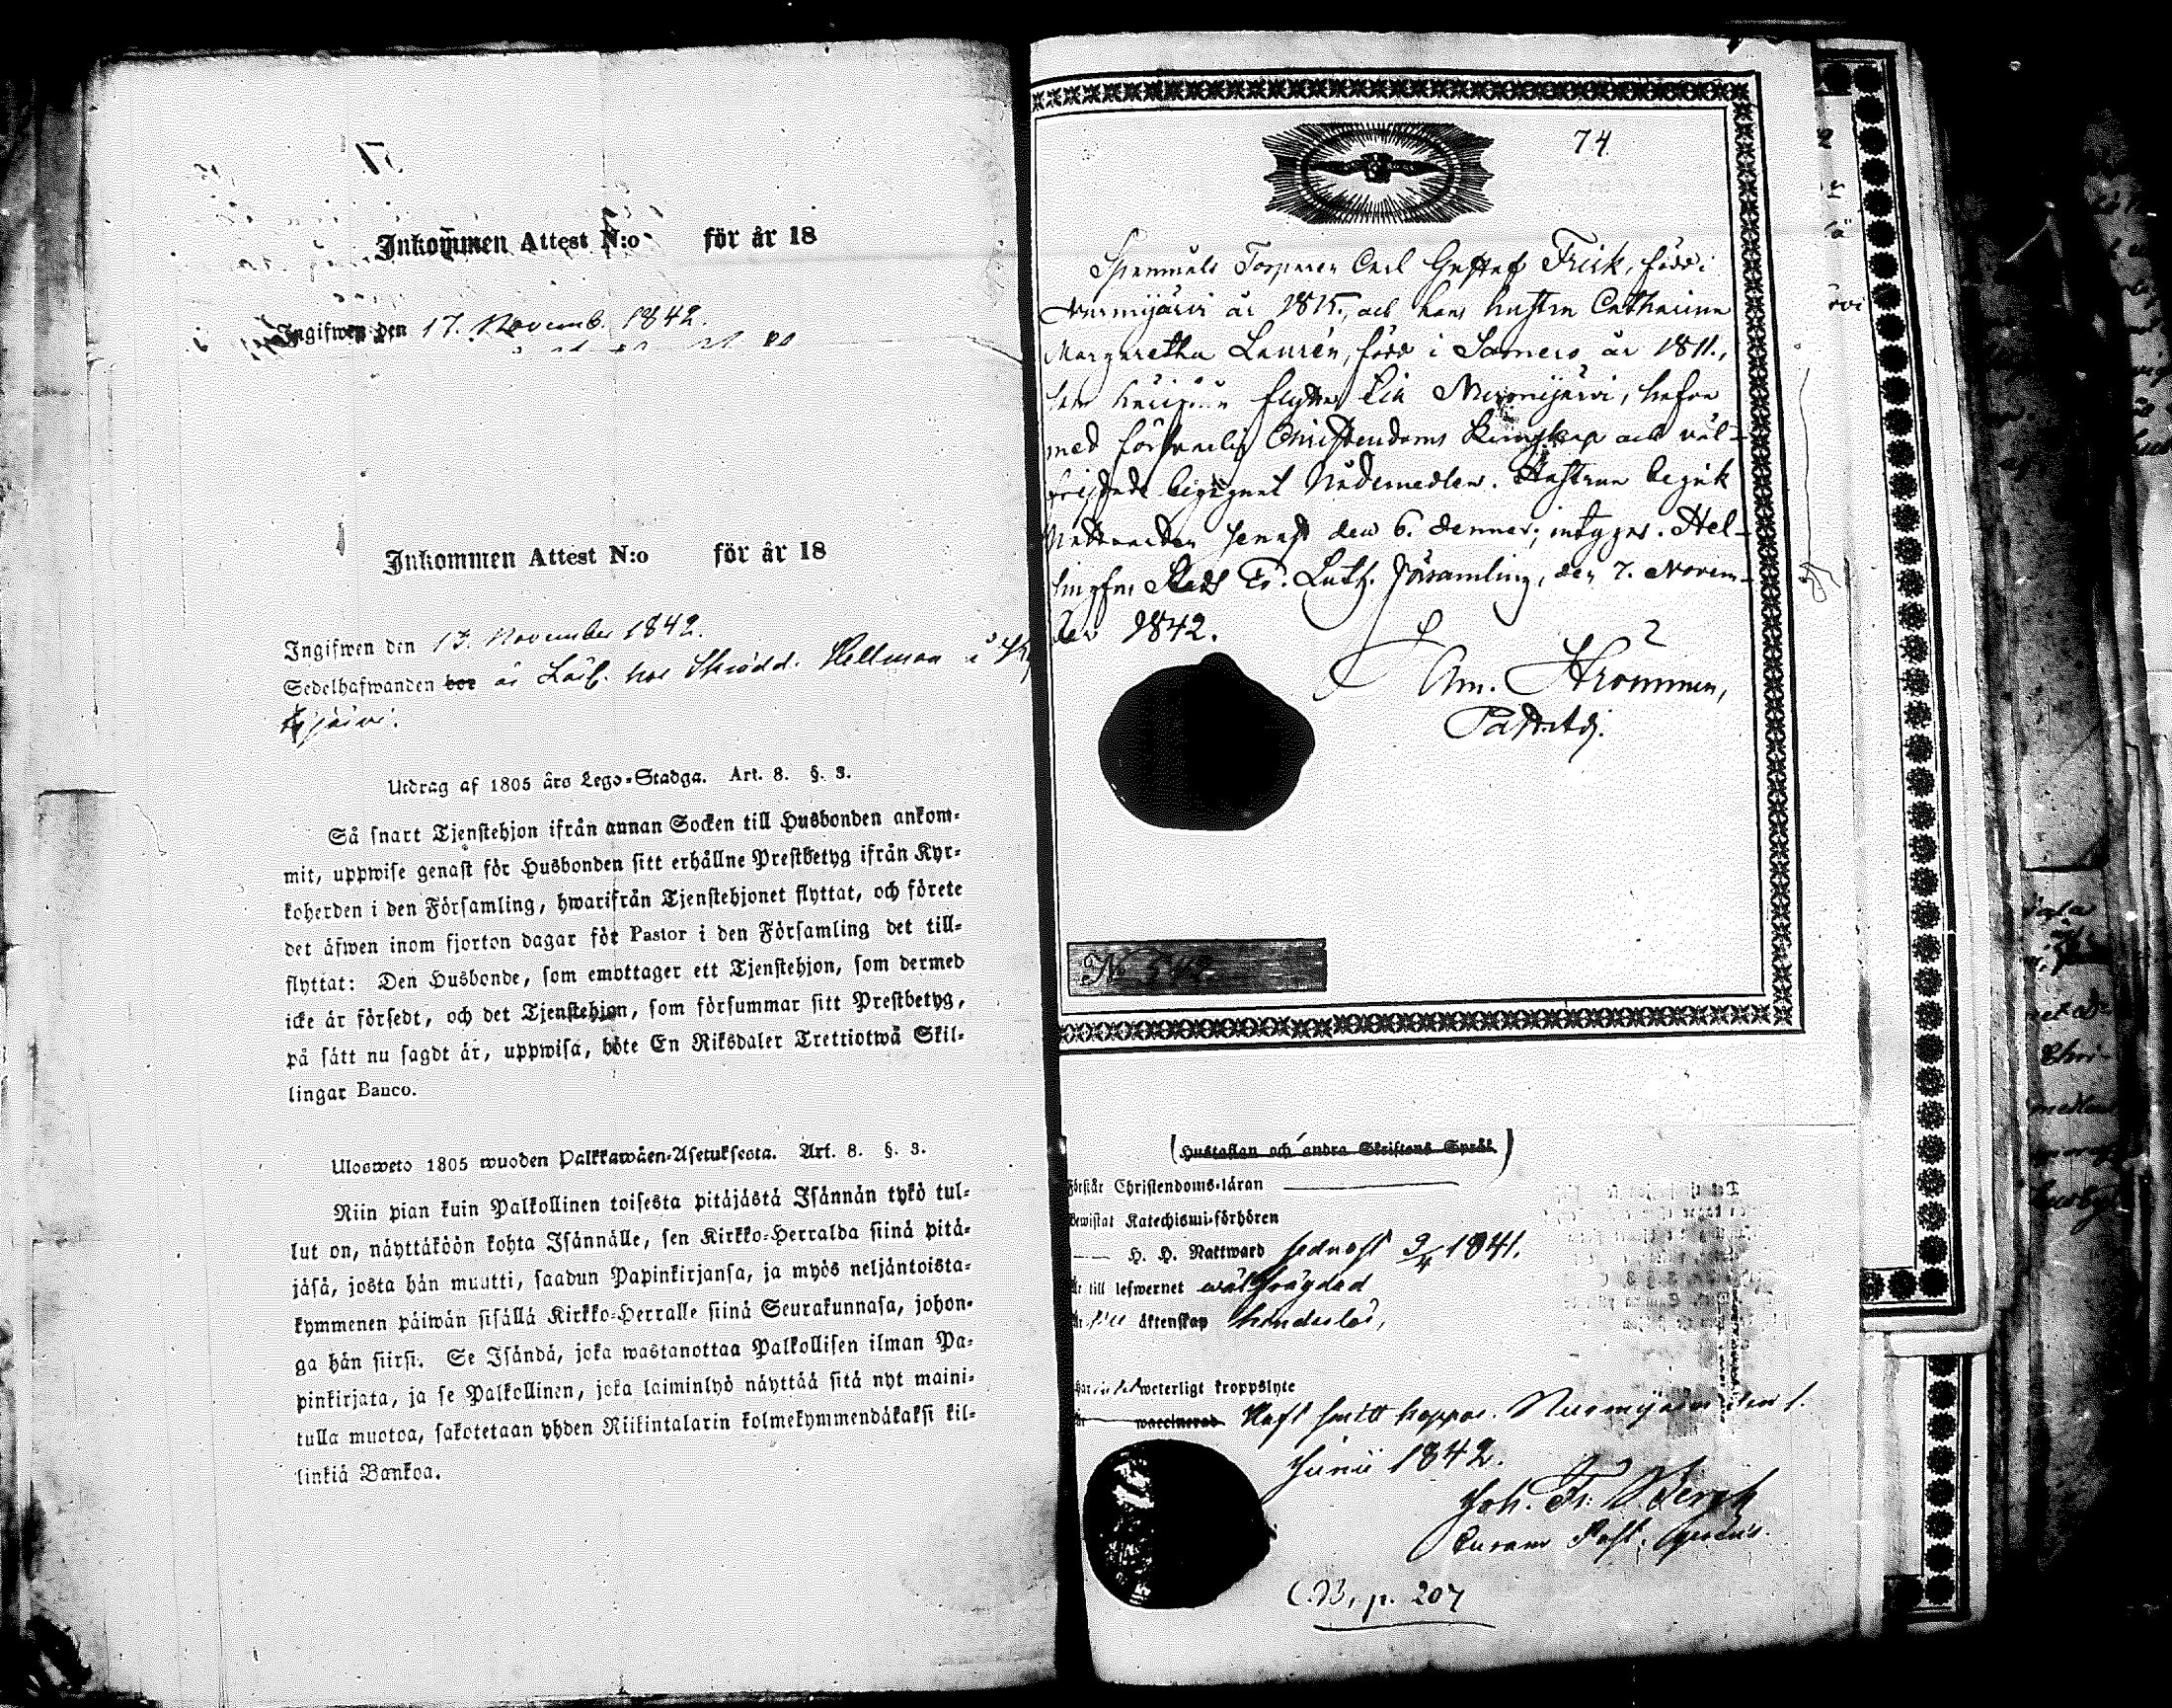 Inkommen Attest N:o för år 18
Ingifwen den 17. Novemb. 1842.
Inkommen Attest N:o för år 18
Ingifwen den 13. November 1842.
Sedelhafwanden bor är Lärl. hos Skrädd. Hellman i
järvi.
Utdrag af 1805 års Lego-Stadga. Art. 8. §. 3.
Så snart Tjenstehjon ifrån annan Socken till Husbonden ankom-
mit, uppwise genast för Husbonden sitt erhållne Prestbetyg ifrån Kyr-
koherden i den Församling, hwarifrån Tjenstehjonet flyttat, och förete
det äfwen inom fjorton dagar för Pastor i den Församling det till-
flyttat: Den Husbonde, som emottager ett Tjenstehjon, som dermed
icke är försedt, och det Tjenstehjon, som försummar sitt Prestbetyg,
på sätt nu sagdt är, uppwisa, böte En Riksdaler Trettiotwå Skil-
lingar Banco.
Ulosweto 1805 wuoden Palkkawäen-Asetuksesta. Art. 8. §. 3.
Niin pian kuin Palkollinen toisesta pitäjästä Isännän tykö tul-
lut on, näyttäköön kohta Isännälle, sen Kirkko-Herralda siinä pitä-
jäsä, josta hän muutti, saadun Papinkirjansa, ja myös neljäntoista-
kymmenen päiwän sisällä Kirkko-Herralle siinä Seurakunnasa, johon-
ga hän siirsi. Se Isändä, joka wastanottaa Palkollisen ilman Pa-
pinkirjata, ja se Palkollinen, joka laiminlyö näyttää sitä nyt maini-
tulla muotoa, sakotetaan yhden Riikintalarin kolmekymmendäkaksi kil-
linkiä Bankoa.
74
Torparen Carl Gustaf Frisk, född i
Nurmijärvi år 1815, och hans hustru Catharina
Margaretha Laurén, född i Somero år 1811.,
flytta till Nurmijärvi, hafva
med försvarlig Christendoms kunskap och väl-
begagnat Nådemedlen. Hustrun begick
Nattvarden senast den 6. dennes; intygas. Hel-
singfors Stads Ev. Luth. Församling, den 7. Novem-
ber 1842.
Strömmen,
Past. Adj.
No
(Hustaflan och andra Skriftens Språk)
Förstår Christendoms-läran
Bewistat Katechismi-förhören
H. H. Nattward sednast 9/4 1841.
Är till lefwernet wälfrägdad
Är till äktenskap hinderlös,
weterligt kroppslyte
waccinerad Haft smittkoppor. Nurmijärvi den 1.
Junii 1842.
Joh. Fr. Bergh
Curam Past. gerens.
C.B. p. 207